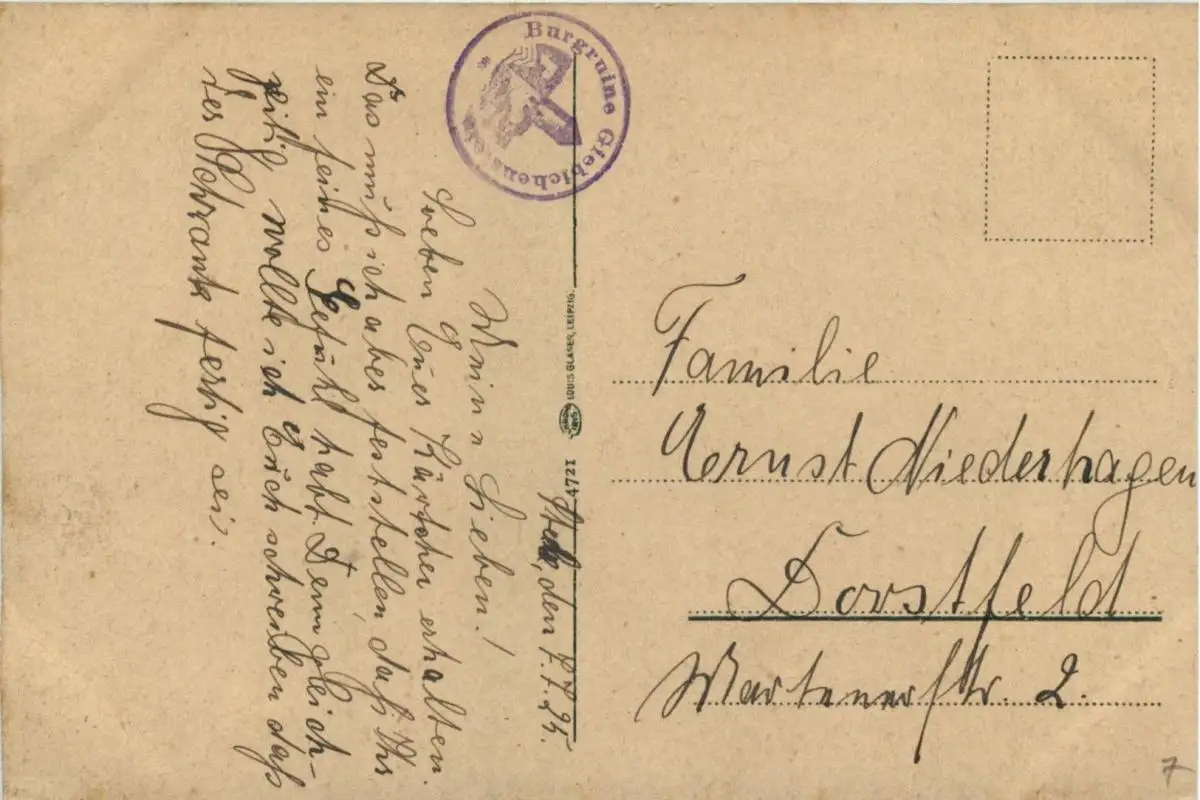 * Burgruine Giebichenstein
4721
LOUIS GLASER, LEIPZIG.
den 7.7.25.
Meine Lieben!
Soeben Euer Kärtchen erhalten.
Das muß ich aber feststellen, daß Ihr
ein feines Gefühl habt. Denn gleich-
zeitig wollte ich Euch schreiben daß
der Schrank fertig sei.
Familie
Ernst Niederhagen
Dorstfeld
Martenerstr. 2.
7